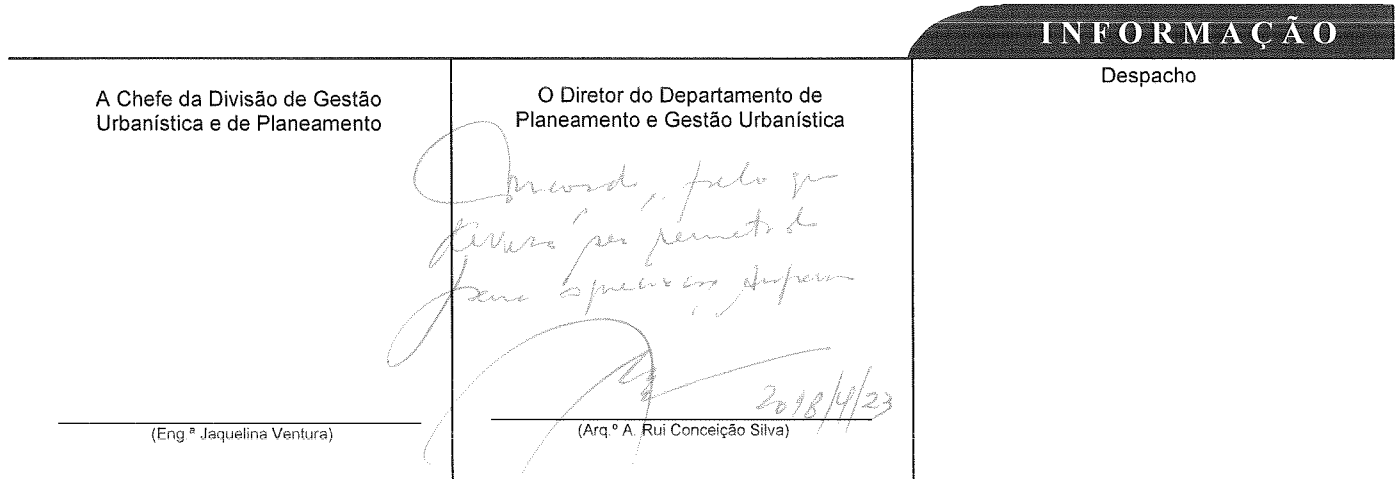 INFORMAÇÃO
A Chefe da Divisão de Gestão
Urbanística e de Planeamento
(Eng.ª Jaquelina Ventura)
O Diretor do Departamento de
Planeamento e Gestão Urbanística
Concordo, pelo que
deverá ser remetido
para apreciação superior
2018/4/23
(Arq.º A. Rui Conceição Silva)
Despacho